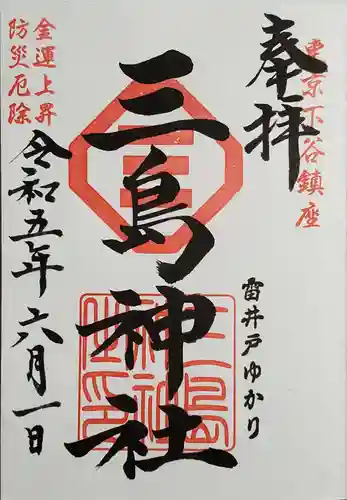 奉拝
東京下谷鎮座
三島神社
雷井戸ゆかり
三島
神社
之印
金運上昇
防災厄除
令和五年六月一日